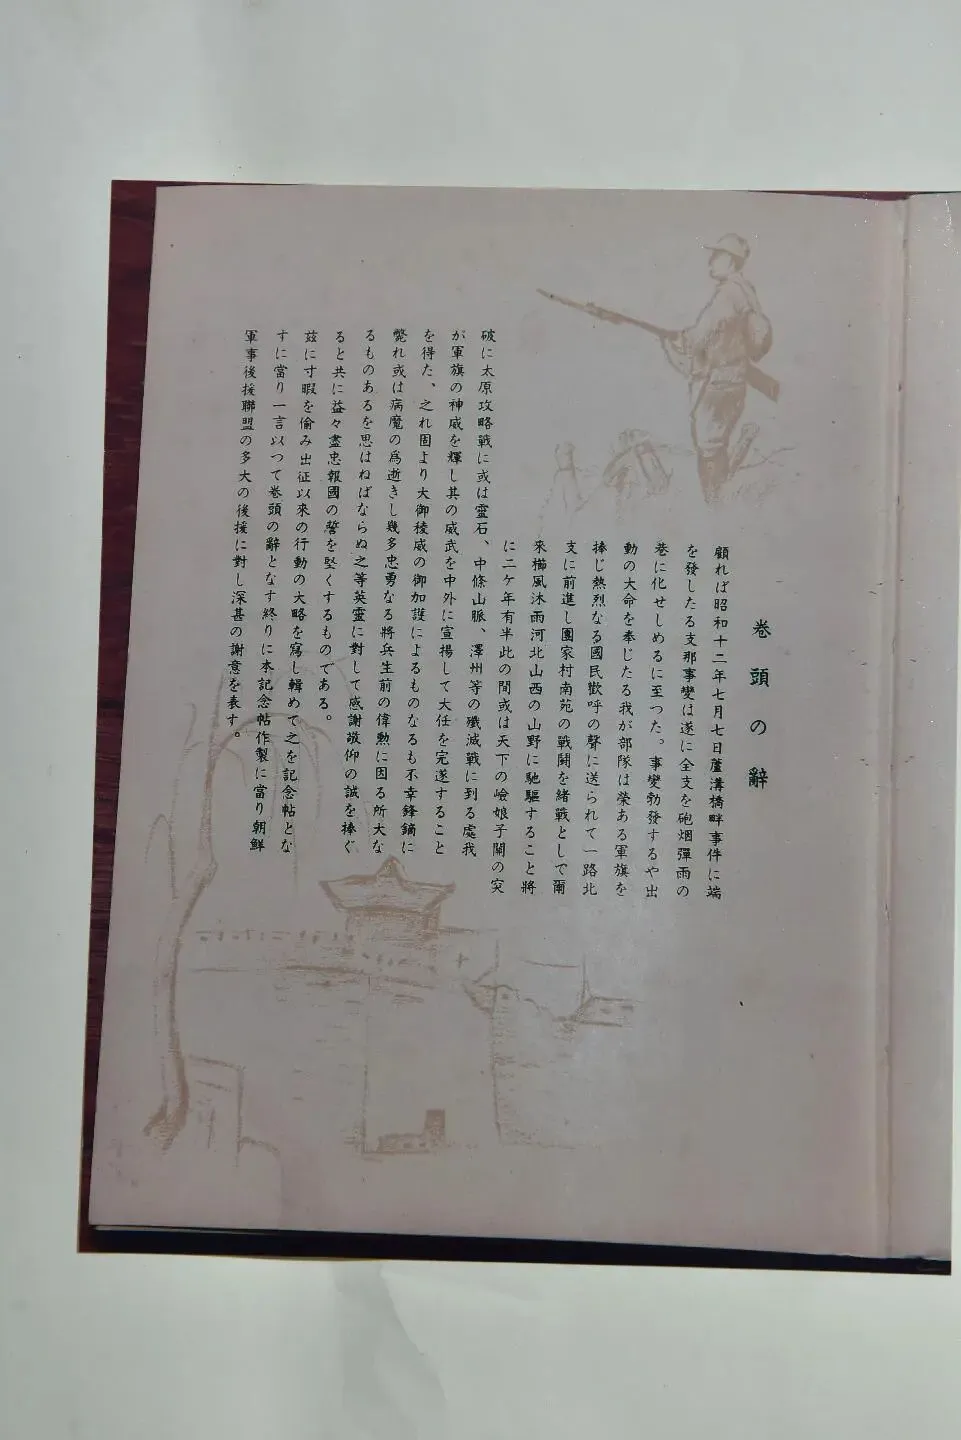 巻頭の辭
顧れば昭和十二年七月七日蘆溝橋畔事件に端
を發したる支那事變は遂に全支を砲烟彈雨の
巷に化せしめるに至つた。事變勃發するや出
動の大命を奉じたる我が部隊は榮ある軍旗を
捧じ熱烈なる國民歡呼の聲に送られて一路北
支に前進し團家村南苑の戰鬪を緒戰として爾
來櫛風沐雨河北山西の山野に馳驅すること將
に二ケ年有半此の間或は天下の嶮娘子關の突
破に太原攻略戰に或は靈石、中條山脈、澤州等の殲滅戰に到る處我
が軍旗の神威を輝し其の威武を中外に宣揚して大任を完遂すること
を得た、之れ固より大御稜威の御加護によるものなるも不幸鋒鏑に
斃れ或は病魔の爲逝きし幾多忠勇なる將兵生前の偉勲に因る所大な
るものあるを思はねばならぬ之等英靈に對して感謝敬仰の誠を捧ぐ
ると共に益々盡忠報國の誓を堅くするものである。
茲に寸暇を偷み出征以來の行動の大略を寫し輯めて之を記念帖とな
すに當り一言以つて巻頭の辭となす終りに本記念帖作製に當り朝鮮
軍事後援聯盟の多大の後援に對し深甚の謝意を表す。